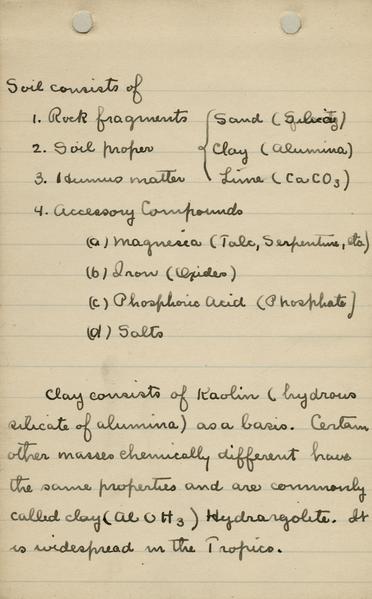 Soil consists of
1. Rock fragments { Sand (Silicates)
2. Soil proper Clay (Alumina)
3. Humus matter Lime (CaCO3)
4. Accessory Compounds
(a) Magnesia (Talc, Serpentine, etc)
(b) Iron (Oxides)
(c) Phosphoric Acid (Phosphate)
(d) Salts
Clay consists of Kaolin (hydrous
silicate of alumina) as a basis. Certain
other masses chemically different have
the same properties and are commonly
called clay (Al OH3) Hydrargolite. It
is widespread in the Tropics.